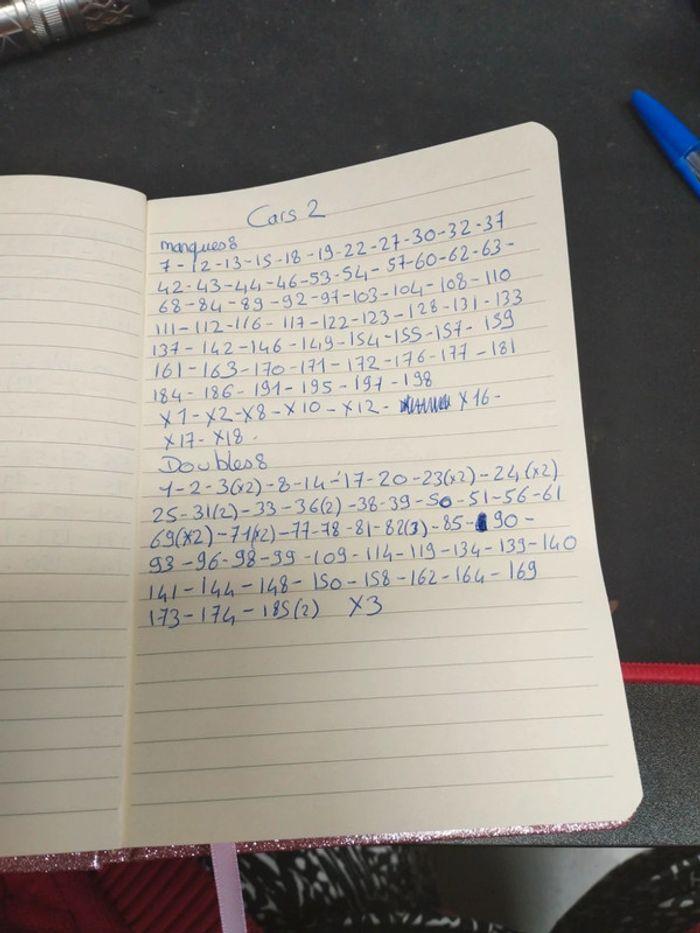 Cars 2
manques :
7-12-13-15-18-19-22-27-30-32-37
42-43-44-46-53-54-57-60-62-63-
68-84-89-92-97-103-104-108-110
111-112-116-117-122-123-128-131-133
137-142-146-149-154-155-157-159
161-163-170-171-172-176-177-181
184-186-191-195-197-198
X1-X2-X8-X10-X12- X16-
X17-X18.
Doubles :
1-2-3(x2)-8-14-17-20-23(x2)-24(x2)
25-31(2)-33-36(2)-38-39-50-51-56-61
69(x2)-71(x2)-77-78-81-82(3)-85-90-
93-96-98-99-109-114-119-134-139-140
141-144-148-150-158-162-164-169
173-174-185(2) X3